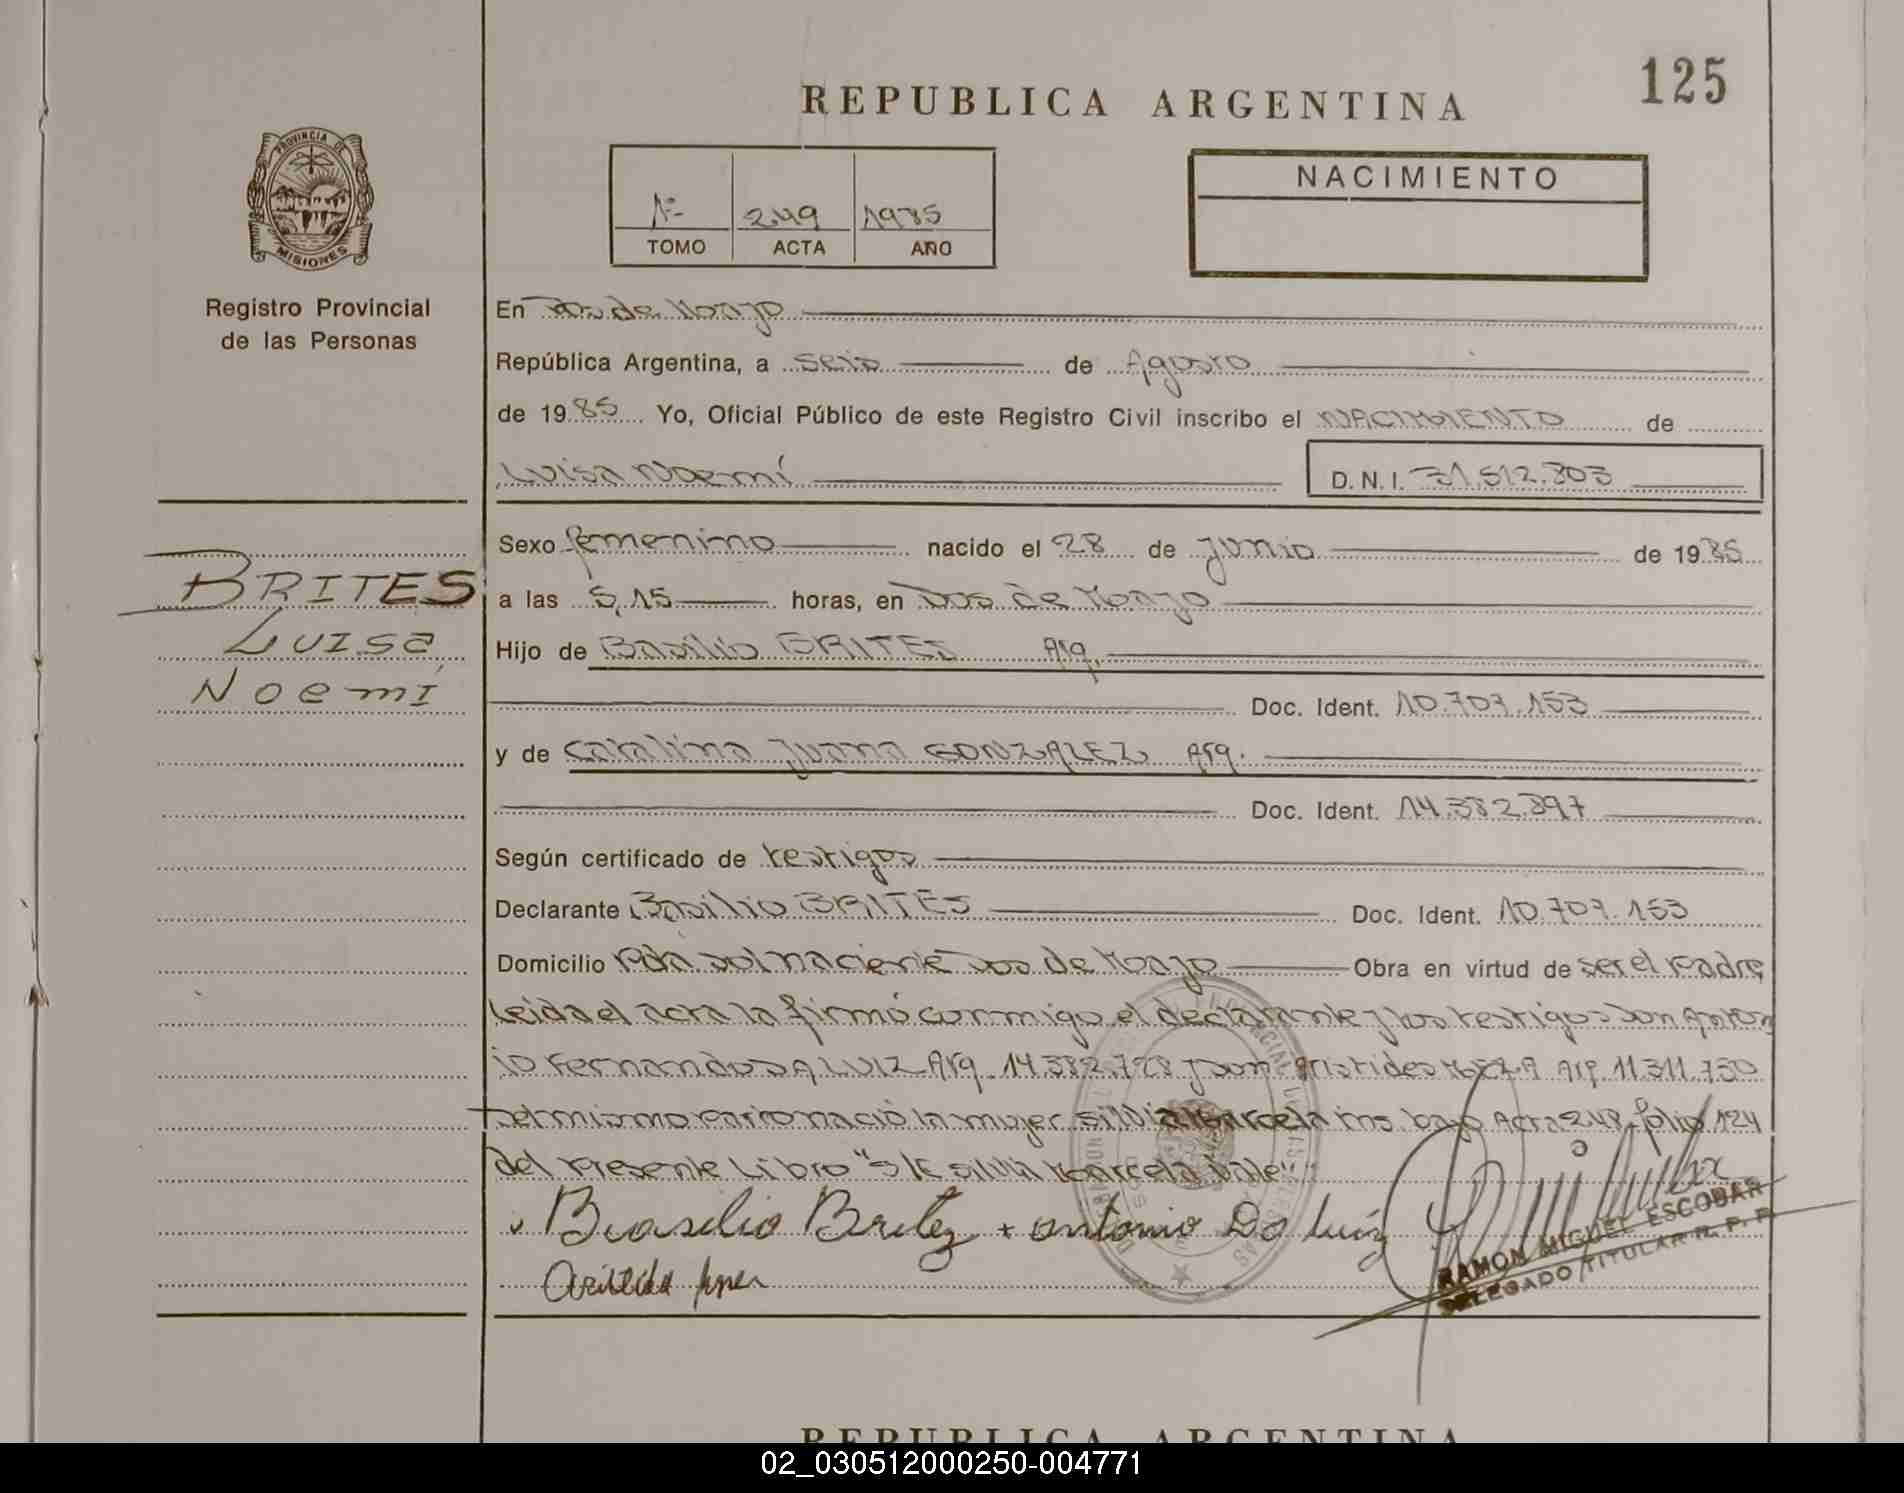 125
REPUBLICA ARGENTINA
PROVINCIA DE
MISIONES
Registro Provincial
de las Personas
Nº 249 1985
TOMO ACTA AÑO
NACIMIENTO
En Dos de Mayo
República Argentina, a seis de Agosto
de 1985 Yo, Oficial Público de este Registro Civil inscribo el NACIMIENTO de
Luisa Noemí D. N. I. 31.512.803
Sexo femenino nacido el 28 de Junio de 1985
BRITES
Luisa
Noemí
a las 5,15 horas, en Dos de Mayo
Hijo de Basilio BRITES Arg.
Doc. Ident. 10.707.153
y de Catalina Juana GONZALEZ Arg.
Doc. Ident. 14.382.897
Según certificado de testigos
Declarante Basilio BRITES Doc. Ident. 10.707.153
Domicilio Pda Sol naciente Dos de Mayo Obra en virtud de ser el padre
Leida el acta la firmó conmigo el declarante y los testigos Don Anton
io Fernando DA LUIZ Arg. 14.382.728 y Don Aristides Arg 11.311.750
Del mismo parto nació la mujer Silvia Marcela ins. bajo Acta 248 folio 124
del presente Libro "S/R Silvia Marcela Vale"
Basilio Britez + antonio Da luiz
RAMON MIGUEL ESCOBAR
DELEGADO TITULAR R. P. P.
REPUBLICA ARGENTINA
02_030512000250-004771